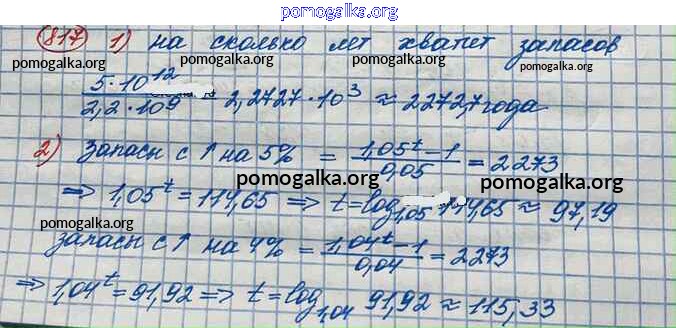 pomogalka.org
817 1) на сколько лет хватит запасов
pomogalka.org pomogalka.org pomogalka.org
5·10^12 / 2,2·10^9 = 2,2727·10^3 ≈ 2272,7 года
2) Запасы с ↑ на 5% = (1,05^t − 1) / 0,05 = 2273
pomogalka.org pomogalka.org
⇒ 1,05^t = 114,65 ⇒ t = log_1,05 114,65 ≈ 97,19
pomogalka.org pomogalka.org
запасы с ↑ на 4% = (1,04^t − 1) / 0,04 = 2273
pomogalka.org
⇒ 1,04^t = 91,92 ⇒ t = log_1,04 91,92 ≈ 115,33